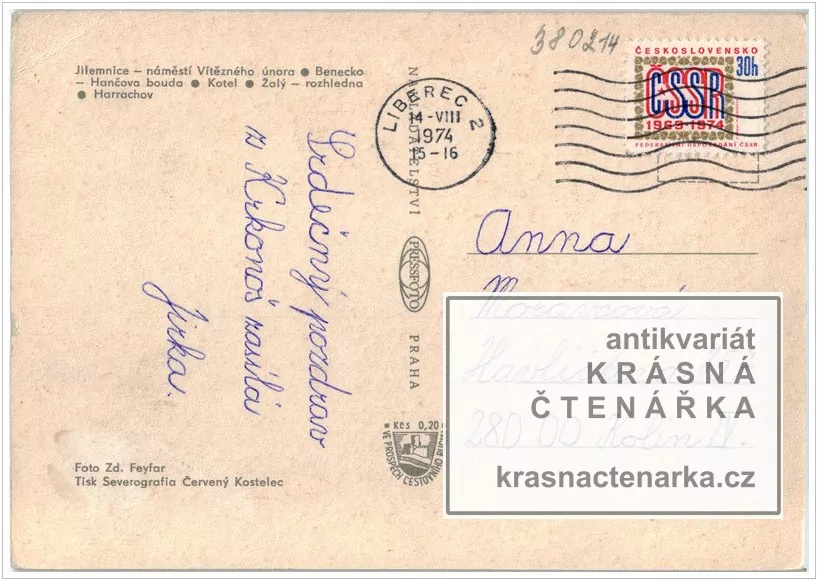 380214
Jilemnice – náměstí Vítězného února ● Benecko
– Hančova bouda ● Kotel ● Žalý – rozhledna
● Harrachov
LIBEREC 2
14-VIII
1974
15-16
ČESKOSLOVENSKO
30h
ČSSR
1969-1974
FEDERATIVNÍ USPOŘÁDÁNÍ ČSSR
Srdečný pozdrav
z Krkonoš zasílá
Jirka.
NAKLADATELSTVÍ
PRESSFOTO
PRAHA
Anna
Moravcová
280 00 Kolín IV.
antikvariát
KRÁSNÁ
ČTENÁŘKA
krasnactenarka.cz
Kčs 0,20
VE PROSPĚCH CESTOVNÍHO RUCHU
Foto Zd. Feyfar
Tisk Severografia Červený Kostelec